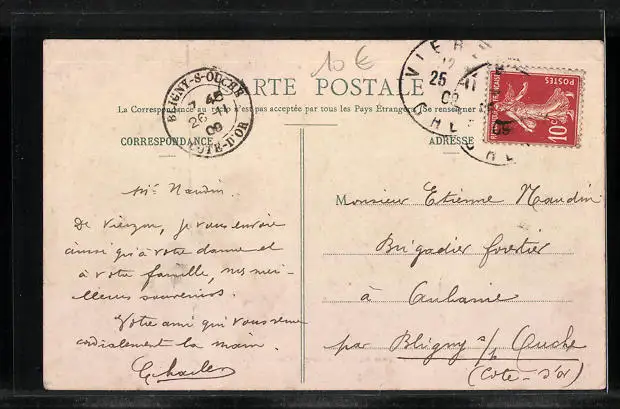 10 €
CARTE POSTALE
La Correspondance au recto n'est pas acceptée par tous les Pays Etrangers (Se renseigner
CORRESPONDANCE
ADRESSE
BLIGNY-S-OUCHE
7 45
26 11
09
COTE-D'OR
VIERZON
12
25 11
09
CHER
POSTES
10c
Mr Naudin
De Vierzon, je vous envoie
ainsi qu'à votre dame et
à votre famille, mes meil-
leurs souvenirs.
Votre ami qui vous serre
cordialement la main.
Charles
Monsieur Etienne Naudin
Brigadier forestier
à Aubaine
par Bligny s/ Ouche
(Cote-d'Or)